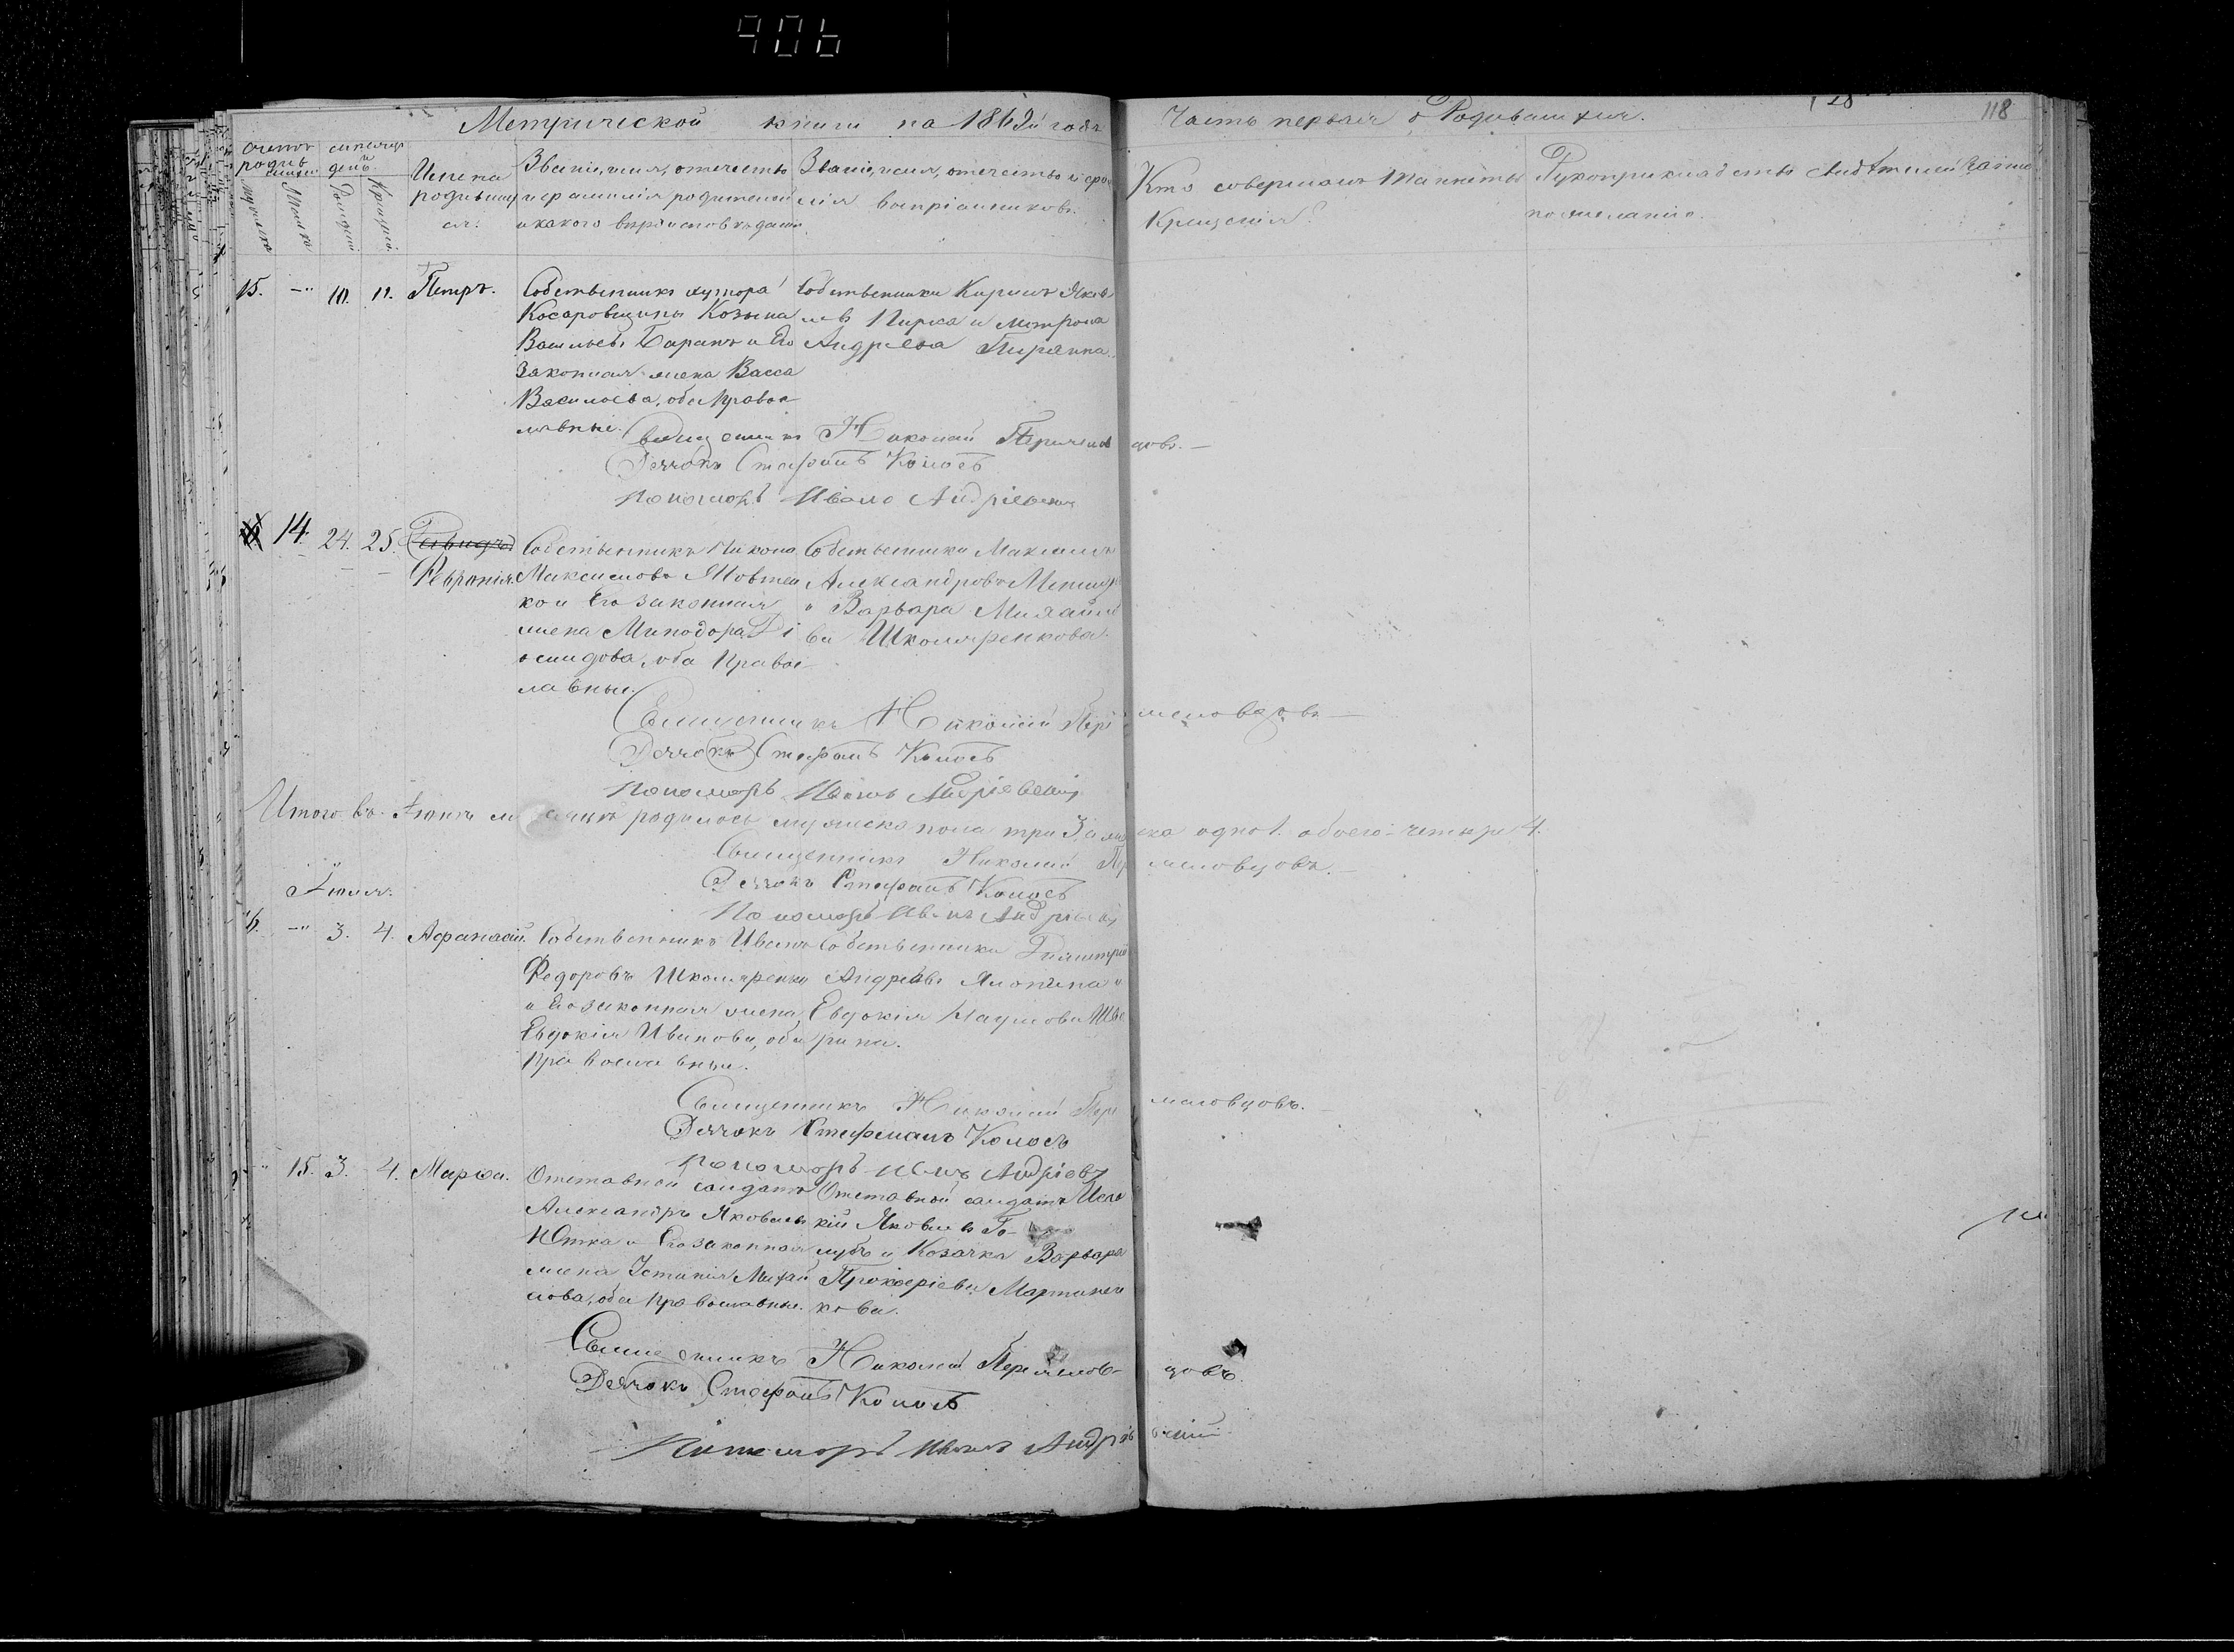 906
128
118
Метрической книги на 1869й годъ Часть первая о Родившихся.
Счетъ родившихся
мужеска
Женска
месяцъ и день
Рожденія
Крещенія
Имена родившихся.
Званіе, имя, отчество
и фамилія родителей
и какого вѣроисповѣданія
Званіе, имя, отчество и фами
лія воспріемниковъ.
Кто совершалъ таинство
Крещенія?
Рукоприкладство свидѣтелей записи
по желанію.
15. — 10. 11. Петръ.
Собственникъ хутора
Косаровщины Козьма
Васильевъ Баранъ и Его
Законная жена Васса
Васильева, оба Правос
лавные.
Собственники Кирилъ Яков
левъ Пирка и Матрона
Андріева
Священникъ Николай цовъ.—
Дьячокъ Стефанъ Колосъ
Пономарь Иванъ Андріевскій
14. 24. 25.
Февронія.
Собственникъ Никона
Максимовъ Мовчан
ко и Его законная
жена Минодора Ді
омидова, оба Право
лавные.
Собственники Максимъ
Александровъ
и Варвара Михайло
ва Школяренкова.
Священникъ Николай меловцовъ—
Дьячокъ Стефанъ Колосъ
Пономарь Иванъ Андріевскій
Итого въ Іюнѣ месяцѣ родилось мужеска пола три 3, а женска одно 1. обоего—четыре 4.
Священникъ Николай Пе меловцовъ.—
Дьячокъ Стефанъ Колосъ
Пономарь Иванъ Андріевскій
Іюля.
16. — 3. 4. Афанасій.
Собственникъ Иванъ
Федоровъ Школяренко
и Его законная жена
Евдокія Иванова, оба
Православные.
Собственники Димитрій
Андреевъ и
Евдокія Наумова Шве
рина.
Священникъ Николай Пере меловцовъ.
Дьячокъ Стефанъ Колосъ
Пономарь Иванъ Андріевскій
" 15. 3. 4. Марфа.
Отставной салдатъ
Александръ Яковлевъ
Ютка и Его законная
жена Устинія Михай
лова, оба Православные.
Отставной салдатъ
кій Яковлевъ Го-
лубъ и Козачка Варвара
Прокофіева Мартинен
кова.
Священникъ Николай Перемелов- цовъ.
Дьячокъ Стефанъ Колосъ
Пономарь Иванъ Андріевскій